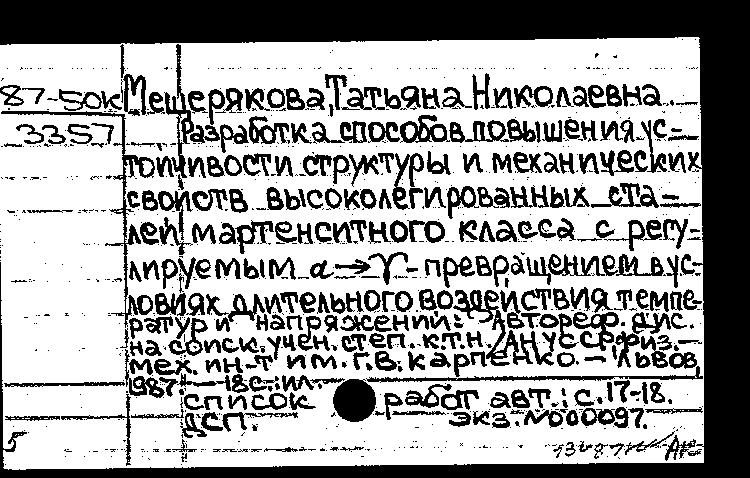 87-50к Мещерякова, Татьяна Николаевна.
3357 Разработка способов повышения ус-
тойчивости структуры и механических
свойств высоколегированных ста-
лей мартенситного класса с регу-
лируемым α→γ-превращением в ус-
ловиях длительного воздействия темпе-
ратур и напряжений: Автореф. дис.
на соиск. учен. степ. к.т.н. /АН УССР. Физ.-
мех. ин-т им. Г.В. Карпенко. - Львов,
1987. - 18 с.: ил.
Список работ авт.: с. 17-18.
ДСП. экз. N000097.
5